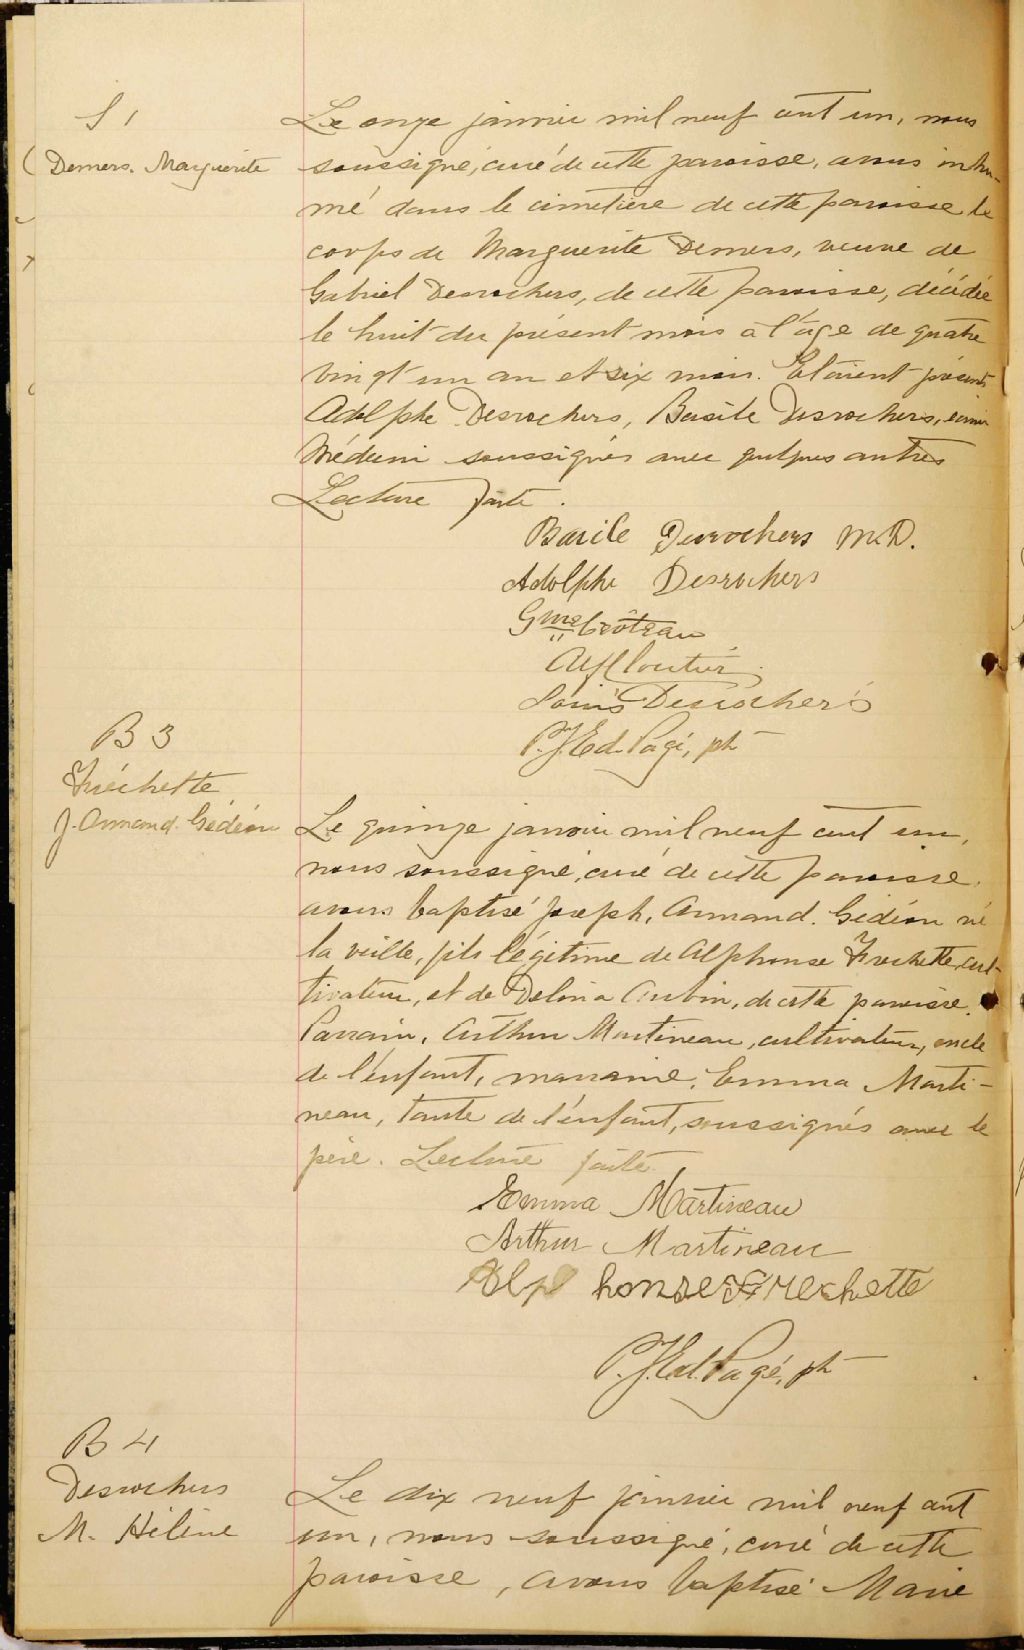 S 1
Demers. Marguerite
Le onze janvier mil neuf cent un, nous
soussigné, curé de cette paroisse, avons inhu-
mé dans le cimetière de cette paroisse le
corps de Marguerite Demers, veuve de
Gabriel Desrochers, de cette paroisse, décédée
le huit du présent mois à l'âge de quatre
vingt un an et six mois. Etaient présents
Adolphe Desrochers, Basile Desrochers,
Médecin soussignés avec quelques autres
Lecture faite.
Basile Desrochers M.D.
Adolphe Desrochers
Gme Côteau
Alf Cloutier
Louis Desrochers
P. J. Ed. Pagé, ptr
B 3
Fréchette
J. Armand. Gédéon
Le quinze janvier mil neuf cent un,
nous soussigné, curé de cette paroisse,
avons baptisé Joseph, Armand. Gédéon né
la veille, fils légitime de Alphonse Frechette, cul-
tivateur, et de Delina Aubin, de cette paroisse.
Parrain, Arthur Martineau, cultivateur, oncle
de l'enfant, marraine, Emma Marti-
neau, tante de l'enfant, soussignés avec le
père. Lecture faite.
Emma Martineau
Arthur Martineau
Alphonse Frechette
P. J. Ed. Pagé, ptr
B 4
Desrochers
M. Hélène
Le dix neuf janvier mil neuf cent
un, nous soussigné, curé de cette
paroisse, avons baptisé Marie